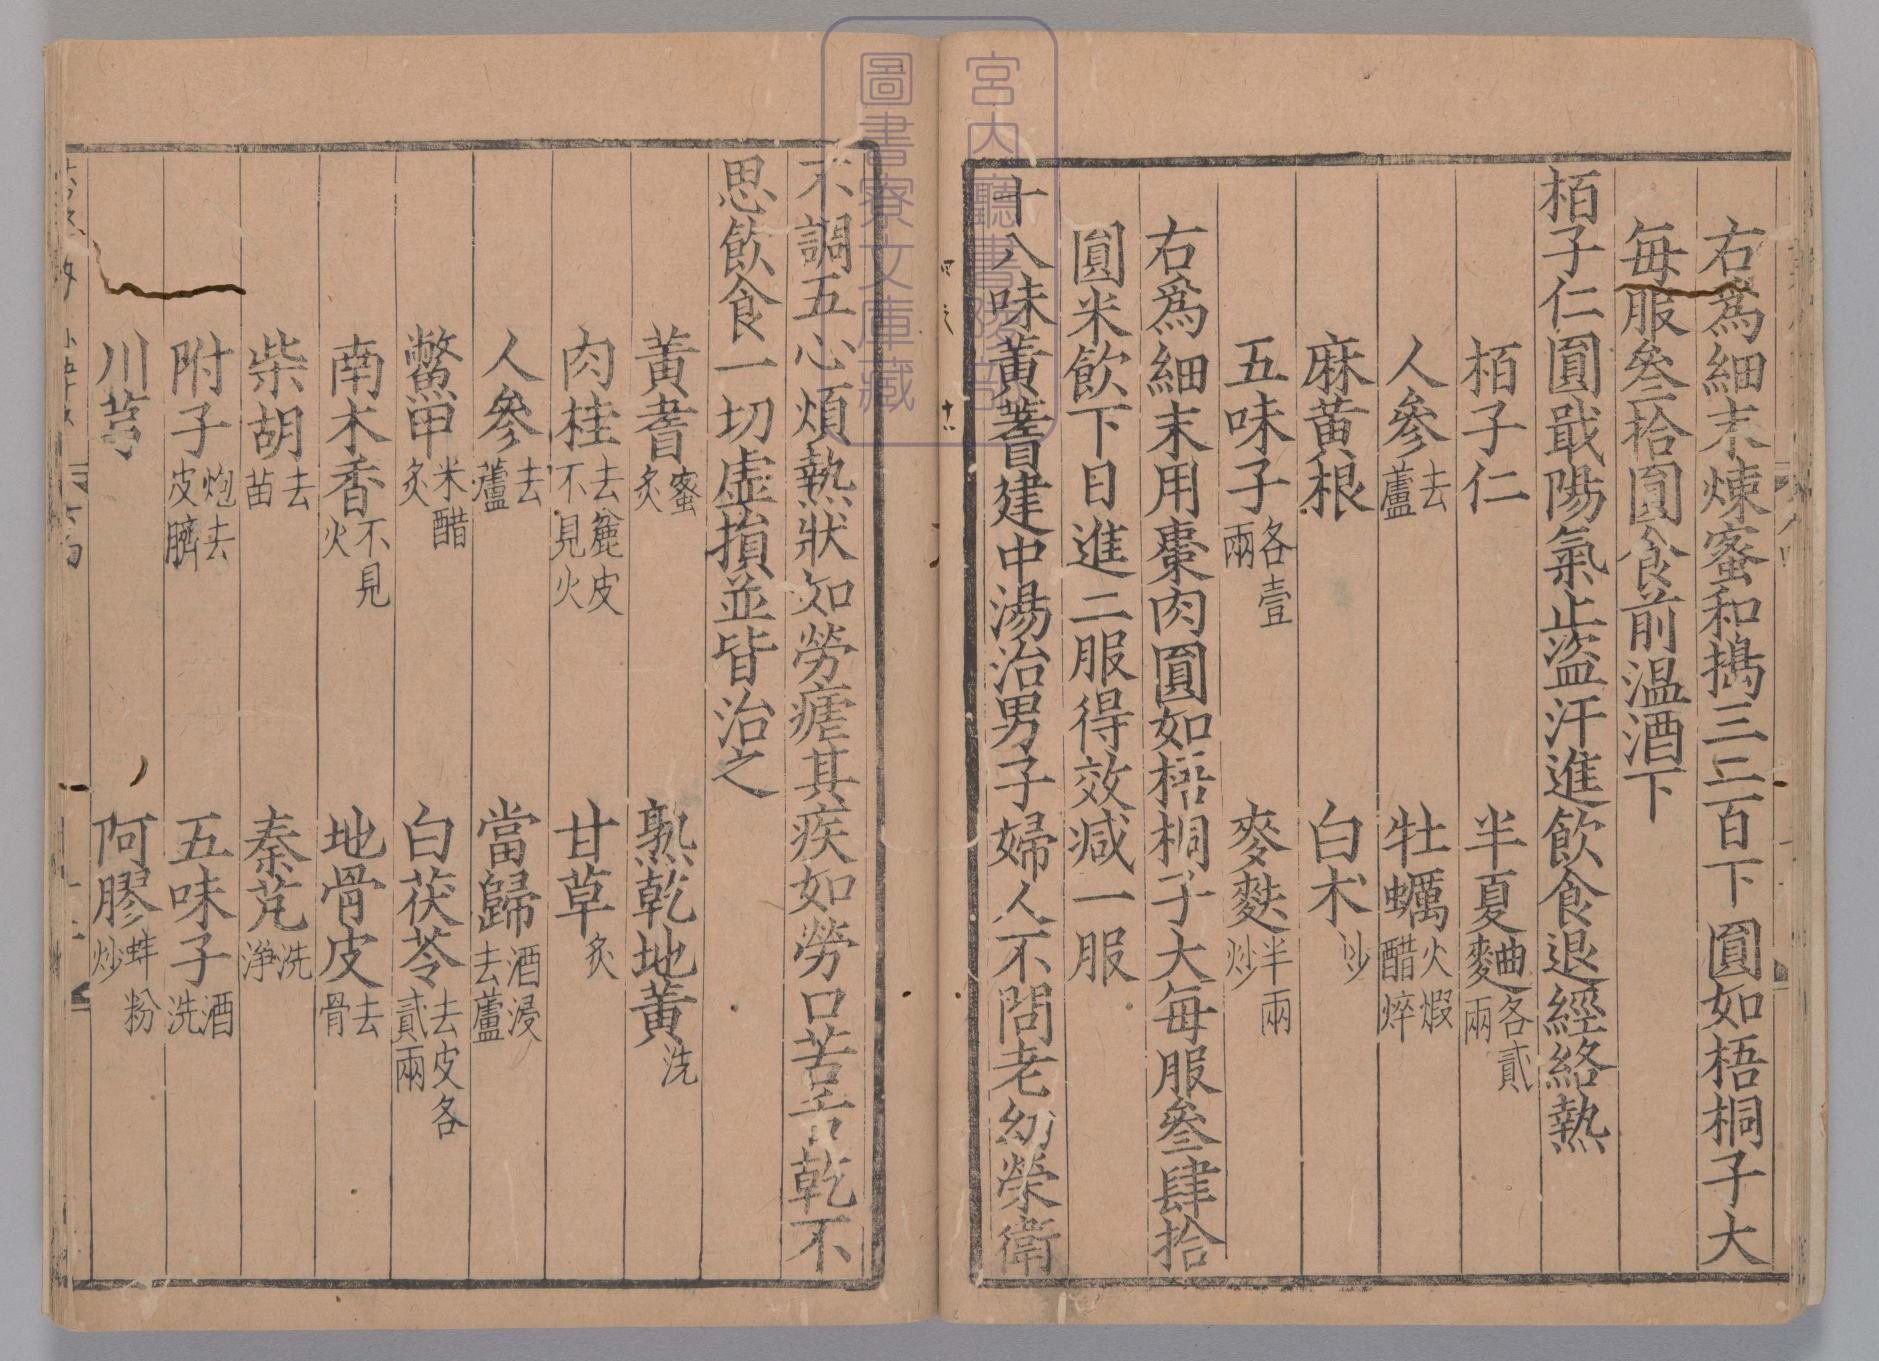 右爲細末煉蜜和搗三二百下圓如梧桐子大
每服叄拾圓食前温酒下
栢子仁圓戢陽氣止盜汗進飲食退經絡熱
栢子仁 半夏麯各貳兩
人參去蘆 牡蠣火煆醋焠
麻黃根 白朮炒
五味子各壹兩 麥麩半兩炒
右爲細末用棗肉圓如梧桐子大每服叄肆拾
圓米飲下日進二服得效减一服
十八味黃蓍建中湯治男子婦人不問老幼榮衛
不調五心煩熱狀如勞瘧其疾如勞口苦舌乾不
思飲食一切虛損並皆治之
黃蓍蜜炙 熟乾地黃洗
肉桂去麄皮不見火 甘草炙
人參去蘆 當歸酒浸去蘆
鱉甲米醋炙 白茯苓去皮各貳兩
南木香不見火 地骨皮去骨
柴胡去苗 秦艽洗淨
附子炮去皮臍 五味子酒洗
川芎 阿膠蚌粉炒
宮内廳書陵部
圖書寮文庫藏